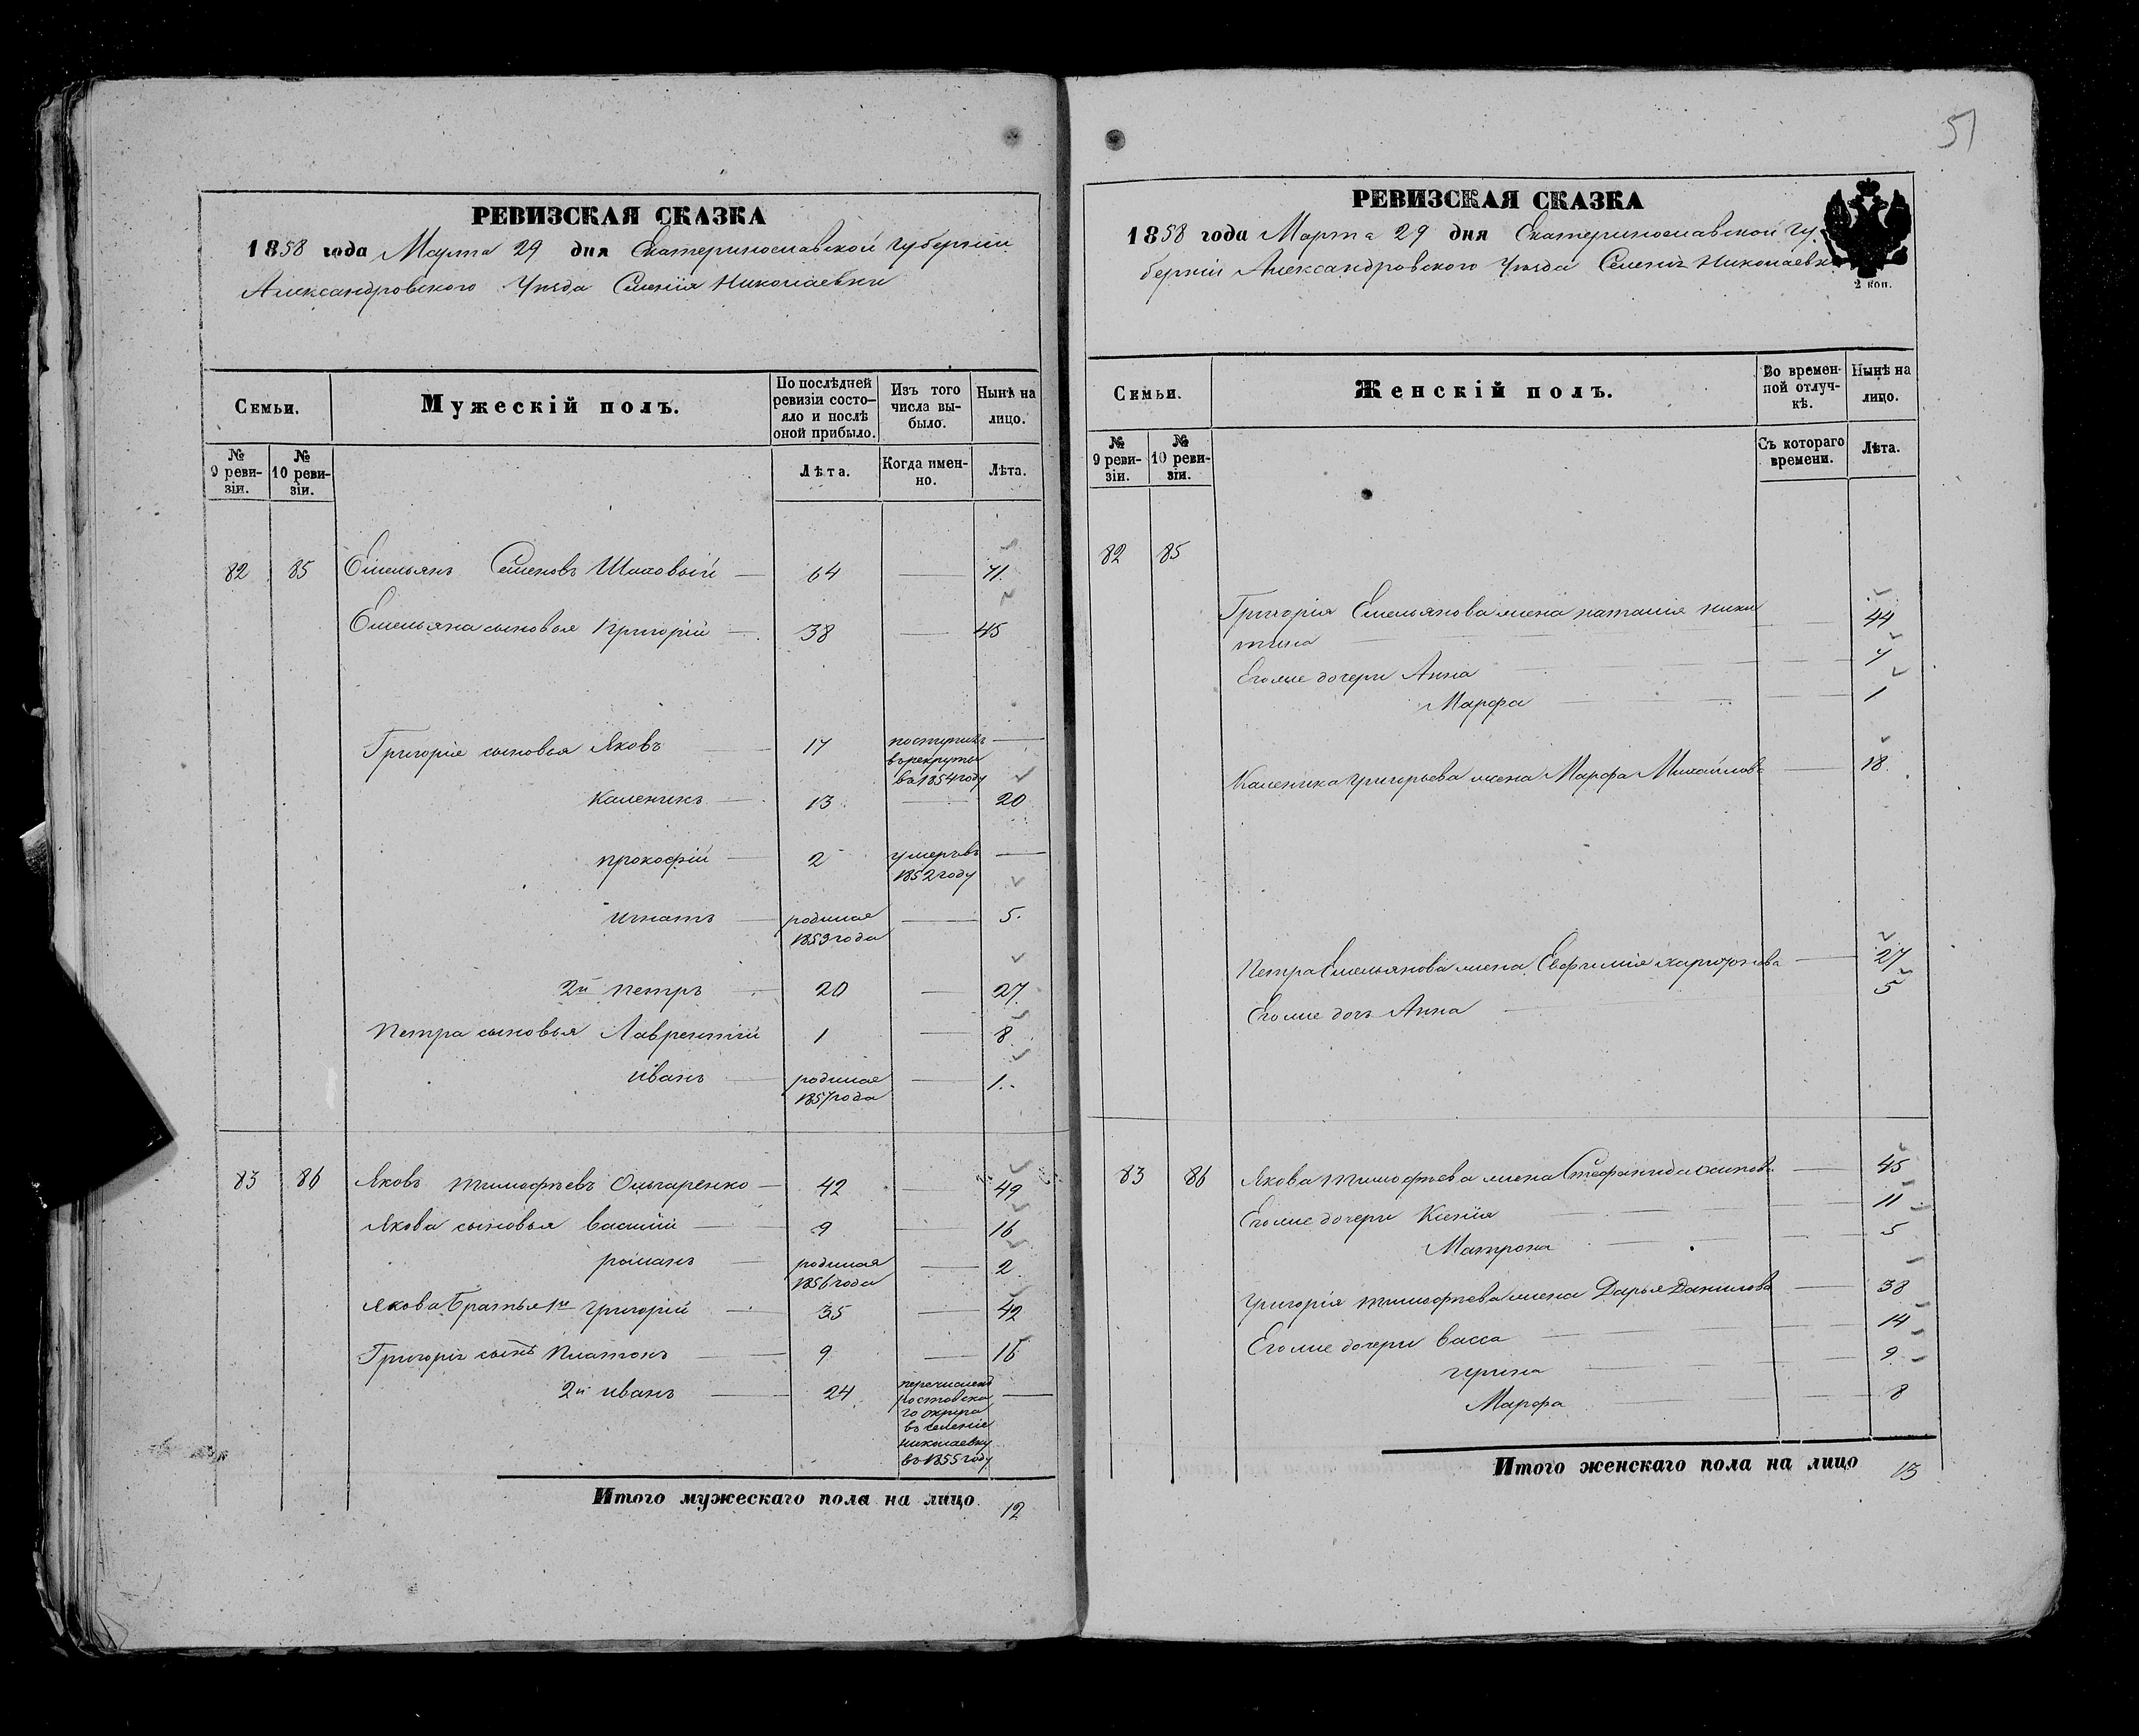 51
РЕВИЗСКАЯ СКАЗКА
1858 года Марта 29 дня Екатеринославской губерніи
Александровского Уезда Селенія Николаевки
Семьи.
Мужескій полъ.
По послѣдней ревизіи состояло и послѣ оной прибыло.
Изъ того числа выбыло.
Нынѣ на лицо.
№ 9 ревизіи.
№ 10 ревизіи.
Лѣта.
Когда именно.
Лѣта.
82 85 Емельянъ Семеновъ 64 — 71.
Емельяна сыновья Григорій — 38 — 45
Григорія сыновья Яковъ — 17 поступилъ —
в рекруты
въ 1854 году
Каленикъ — 13 — 20
прокофій — 2 умеръ въ —
1852 году
игнатъ — родился — 5.
1853 года
2й петръ — 20 — 27.
Петра сыновья Лаврентій 1 — 8
иванъ — родился — 1.
1857 года
83 86 Яковъ тимофѣевъ Ольчаренко — 42 — 49
Якова сыновья василій — 9 — 16
романъ — родился — 2
1856 года
Якова братья 1й григорій — 35 — 42
Григорія сынъ Платонъ — 9 — 16
2й иванъ — 24 перечисленъ —
ростовска
го округа
въ селеніе
николаевку
въ 1855 году
Итого мужескаго пола на лицо 12
РЕВИЗСКАЯ СКАЗКА
1858 года Марта 29 дня Екатеринославской гу
берніи Александровского Уезда Селенія Николаевки
2 коп.
Семьи.
Женскій полъ.
Во временной отлучкѣ.
Нынѣ на лицо.
№ 9 ревизіи.
№ 10 ревизіи.
Съ котораго времени.
Лѣта.
82 85
Григорія Емельянова жена наталія ники
тина — 44
Его же дочери Анна — 7
Марфа — 1
Каленика григорьева жена Марфа Михайлова — 18.
Петра Емельянова жена Евфимія харитонова — 27
Его же дочь Анна — 5
83 86 Якова тимофѣева жена Стефанида осипова — 45
Его же дочери Ксенія — 11
Матрона — 5
григорія тимофѣева жена Дарья Данилова — 38
Его же дочери васса — 14
ирина — 9
Марфа — 8
Итого женскаго пола на лицо 13